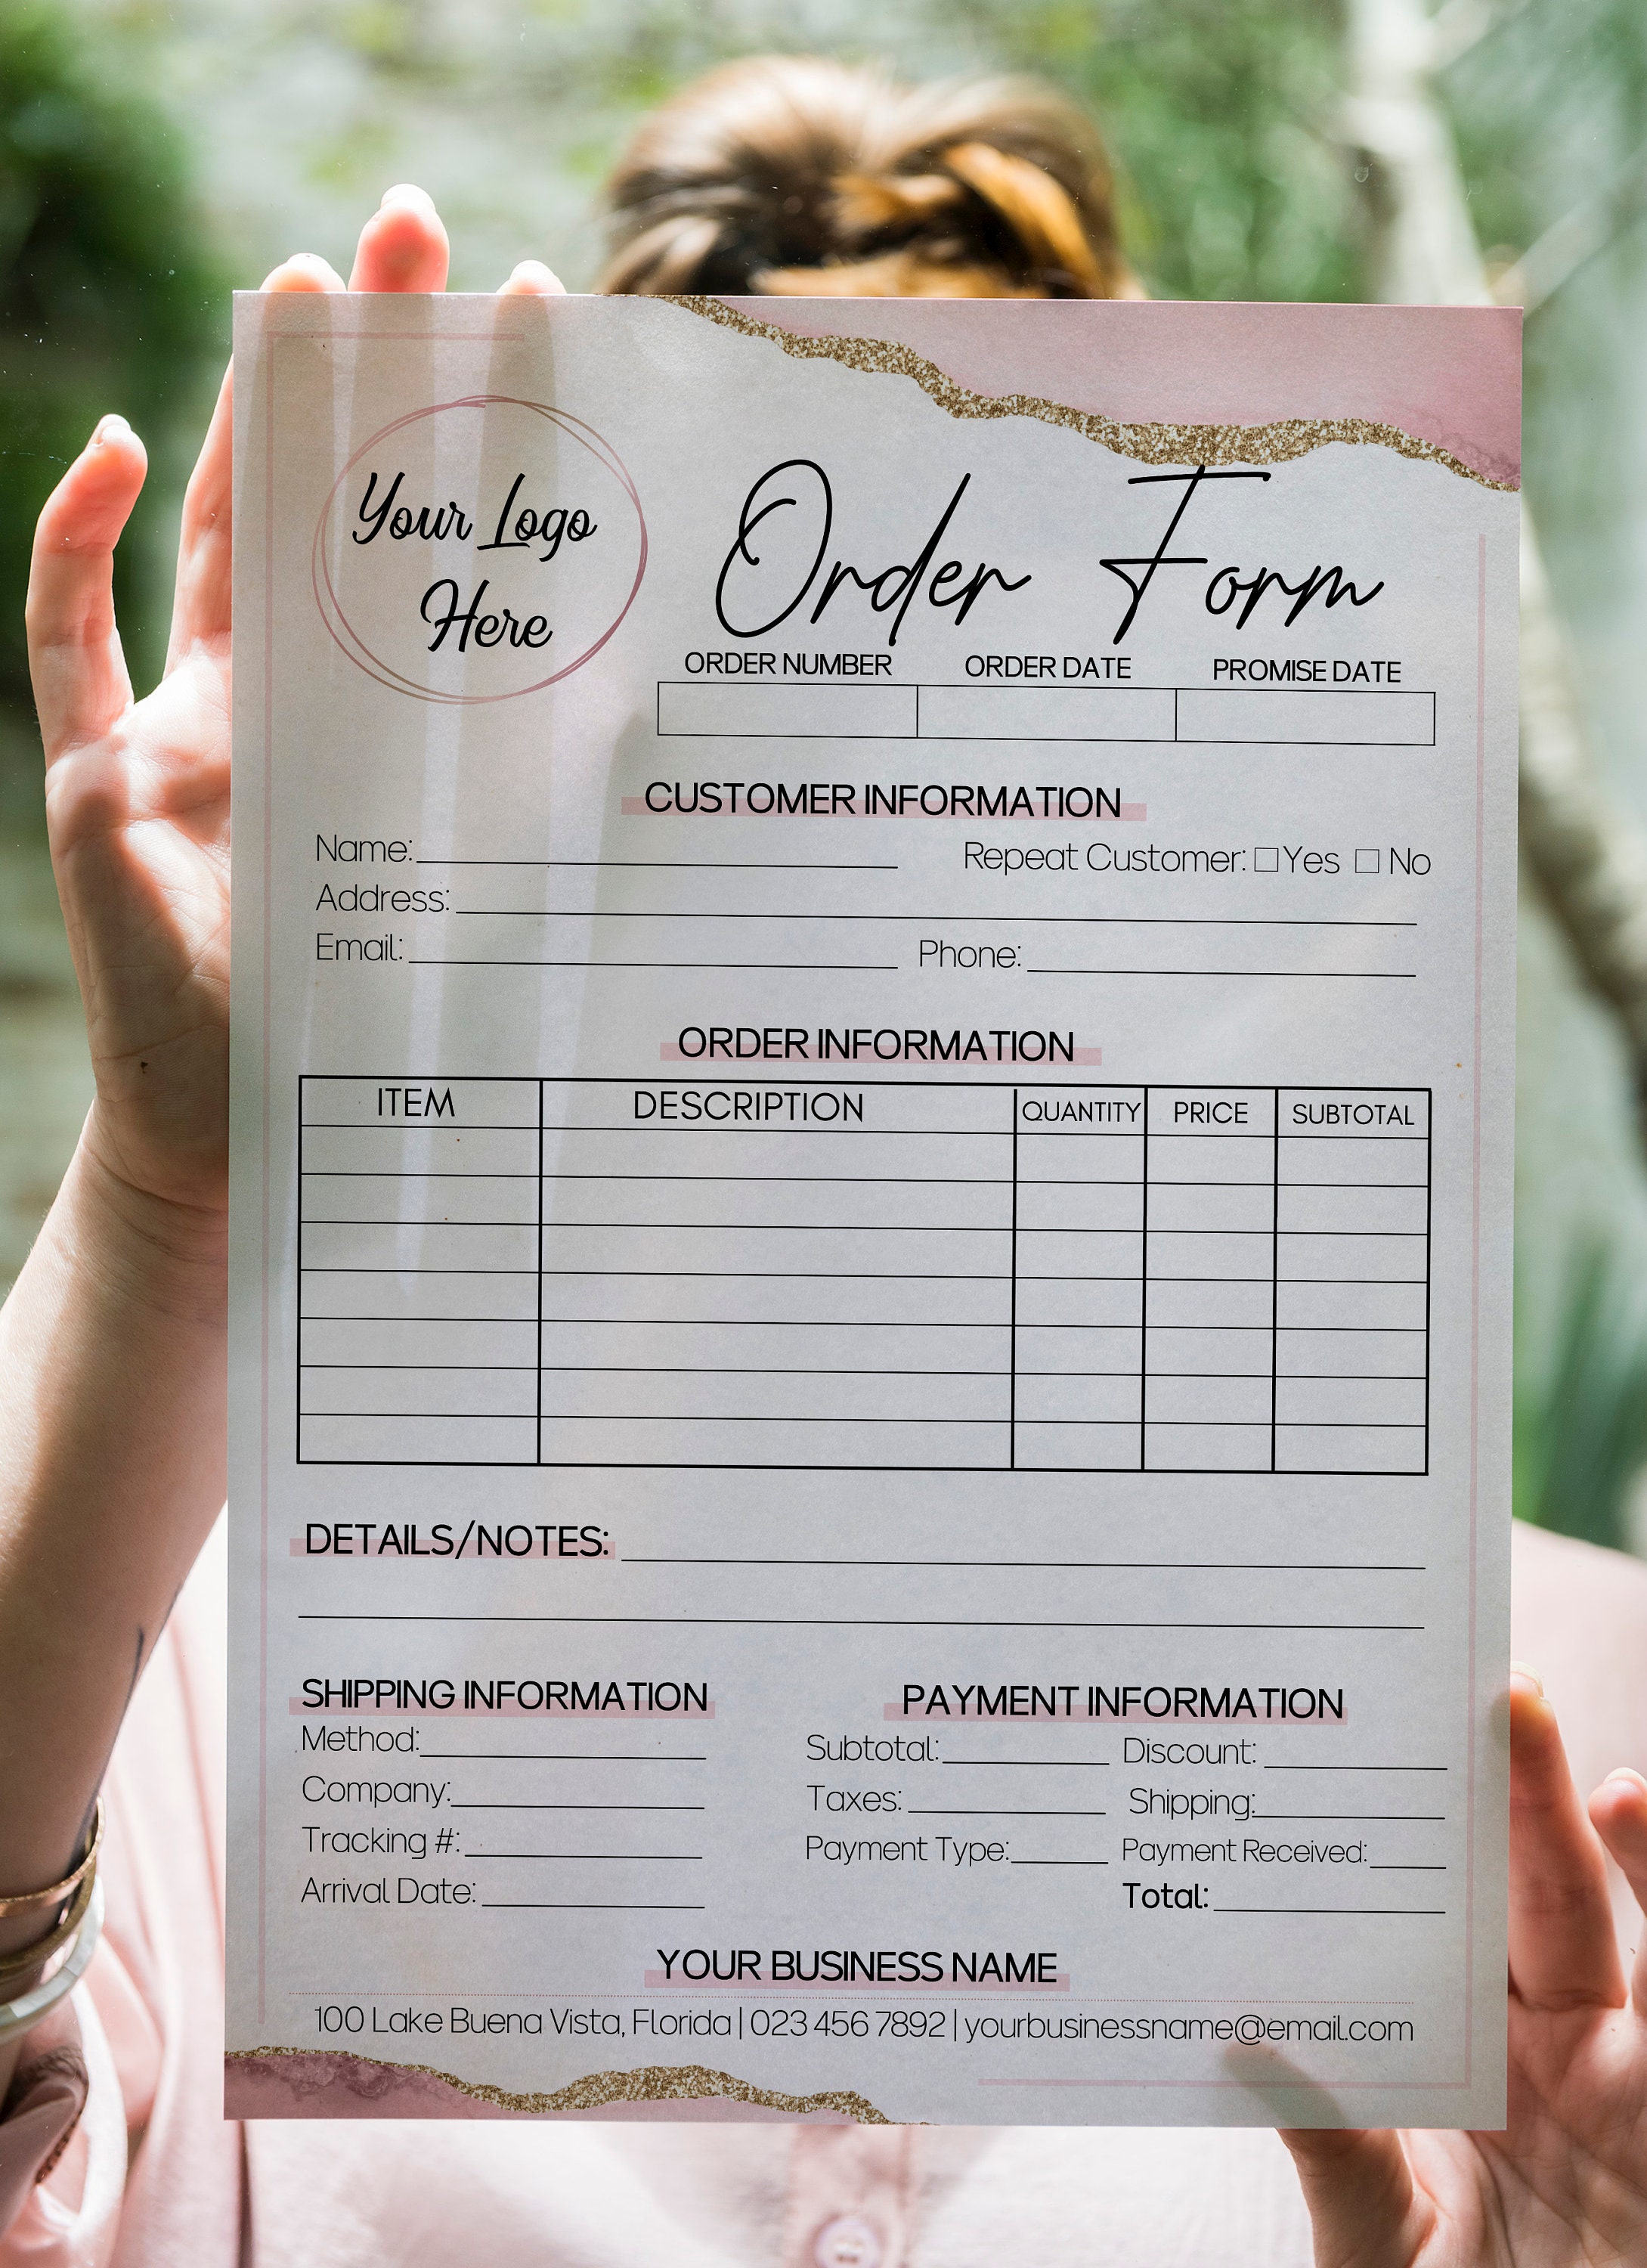 Your Logo
Here
Order Form
ORDER NUMBER ORDER DATE PROMISE DATE
CUSTOMER INFORMATION
Name: Repeat Customer: Yes No
Address:
Email: Phone:
ORDER INFORMATION
ITEM DESCRIPTION QUANTITY PRICE SUBTOTAL
DETAILS/NOTES:
SHIPPING INFORMATION
Method:
Company:
Tracking #:
Arrival Date:
PAYMENT INFORMATION
Subtotal: Discount:
Taxes: Shipping:
Payment Type: Payment Received:
Total:
YOUR BUSINESS NAME
100 Lake Buena Vista, Florida | 023 456 7892 | yourbusinessname@email.com